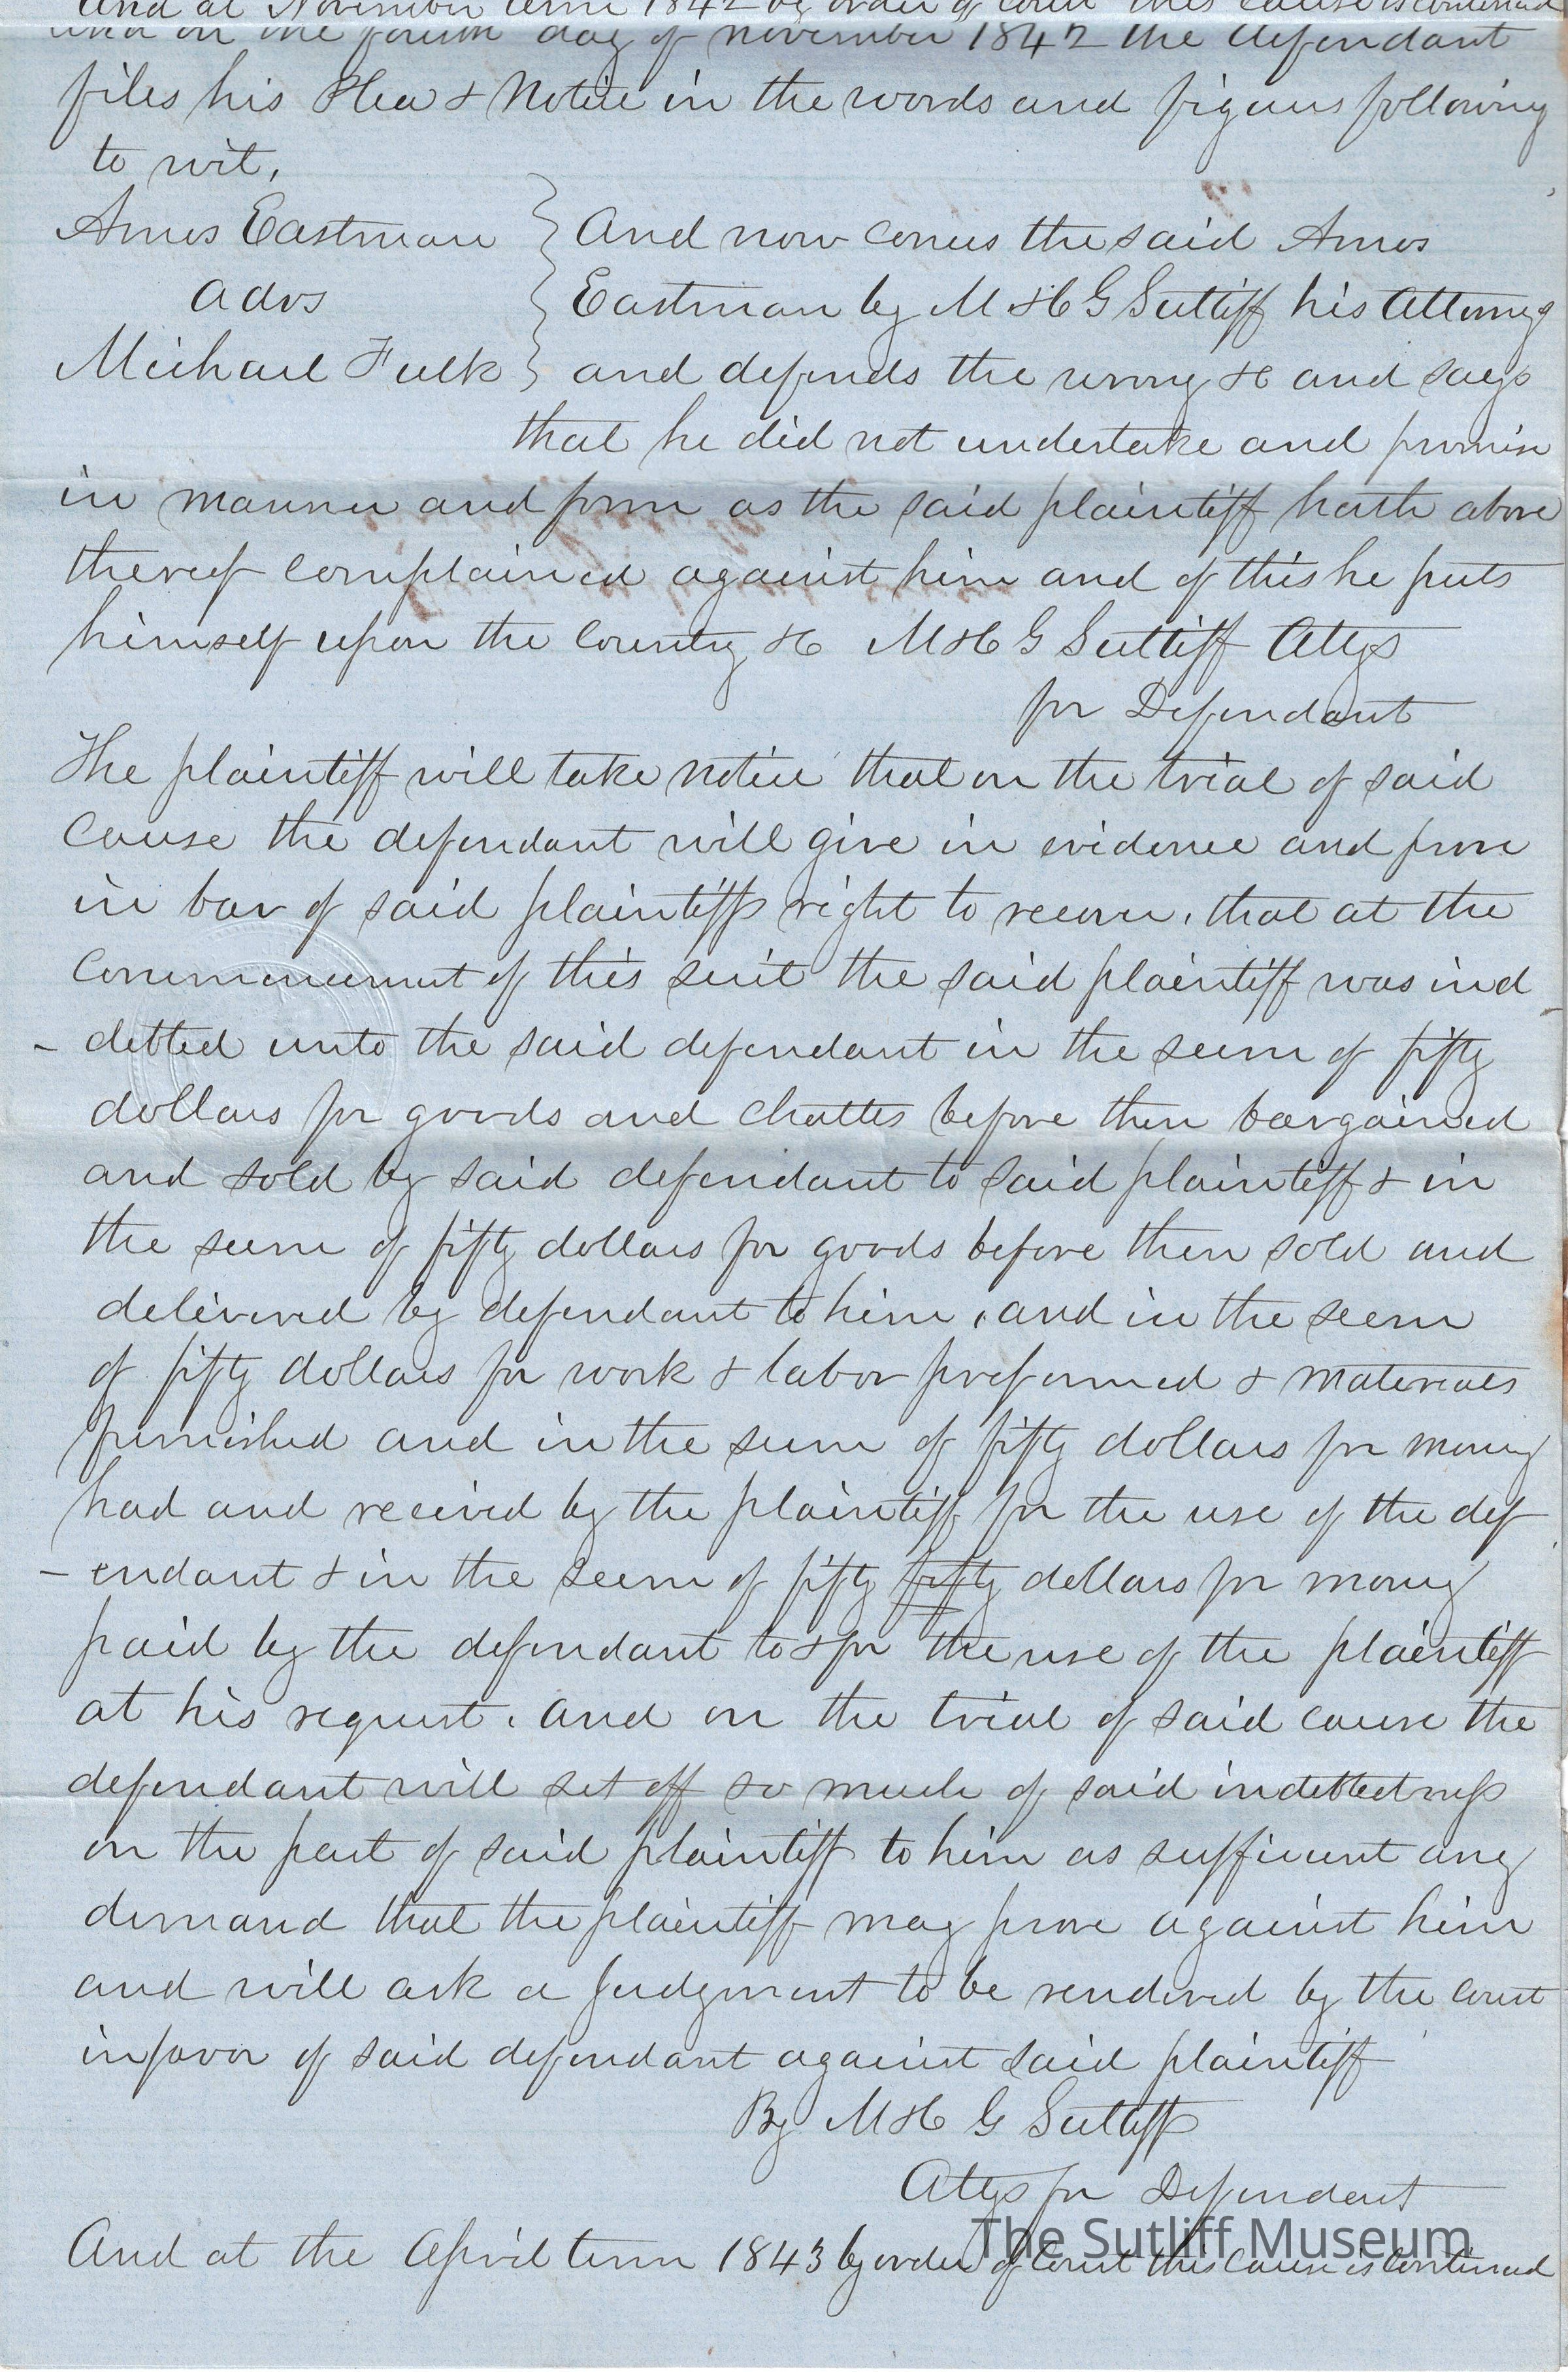 And at November term 1842 by order of Court this cause is continued
and on the fourth day of november 1842 the defendant
files his Plea & Notice in the words and figures following
to wit,
Amos Eastman } And now comes the said Amos
advs } Eastman by M & C G Sutliff his Attorney
Michael Fulk } and defends the wrong &c and says
that he did not undertake and promise
in manner and form as the said plaintiff hath above
thereof complained against him and of this he puts
himself upon the Country &c M & C G Sutliff Attys
for Defendant
The plaintiff will take notice that on the trial of said
Cause the defendant will give in evidence and prove
in bar of said plaintiffs right to recover, that at the
Commencement of this suit the said plaintiff was ind
- debted unto the said defendant in the sum of fifty
dollars for goods and chattes before then bargained
and sold by said defendant to said plaintiff & in
the sum of fifty dollars for goods before then sold and
delivered by defendant to him, and in the sum
of fifty dollars for work & labor preformed & materials
furnished and in the sum of fifty dollars for money
had and received by the plaintiff for the use of the def
- endant & in the sum of fifty fifty dollars for money
paid by the defendant to & for the use of the plaintiff
at his request, and on the trial of said cause the
defendant will set off so much of said indebtedness
on the part of said plaintiff to him as sufficient any
demand that the plaintiff may prove against him
and will ask a Judgment to be rendered by the Court
in favor of said defendant against said plaintiff
By M & C G Sutliff
Attys for Defendant
And at the April term 1843 by order of Court this Cause is Continued
The Sutliff Museum